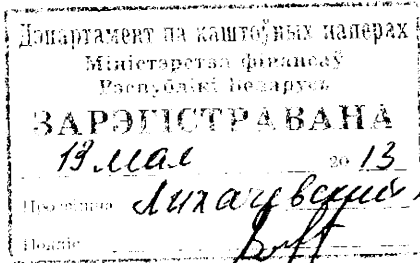 Дэпартамент па каштоўных паперах
Міністэрства фінансаў
Рэспублікі Беларусь
ЗАРЭГІСТРАВАНА
19 мая 2013
Прозвішча Лихачевский
Подпіс